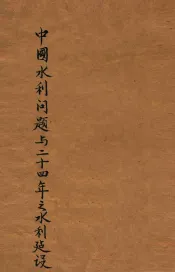 中國水利问題与二十四年之水利建设